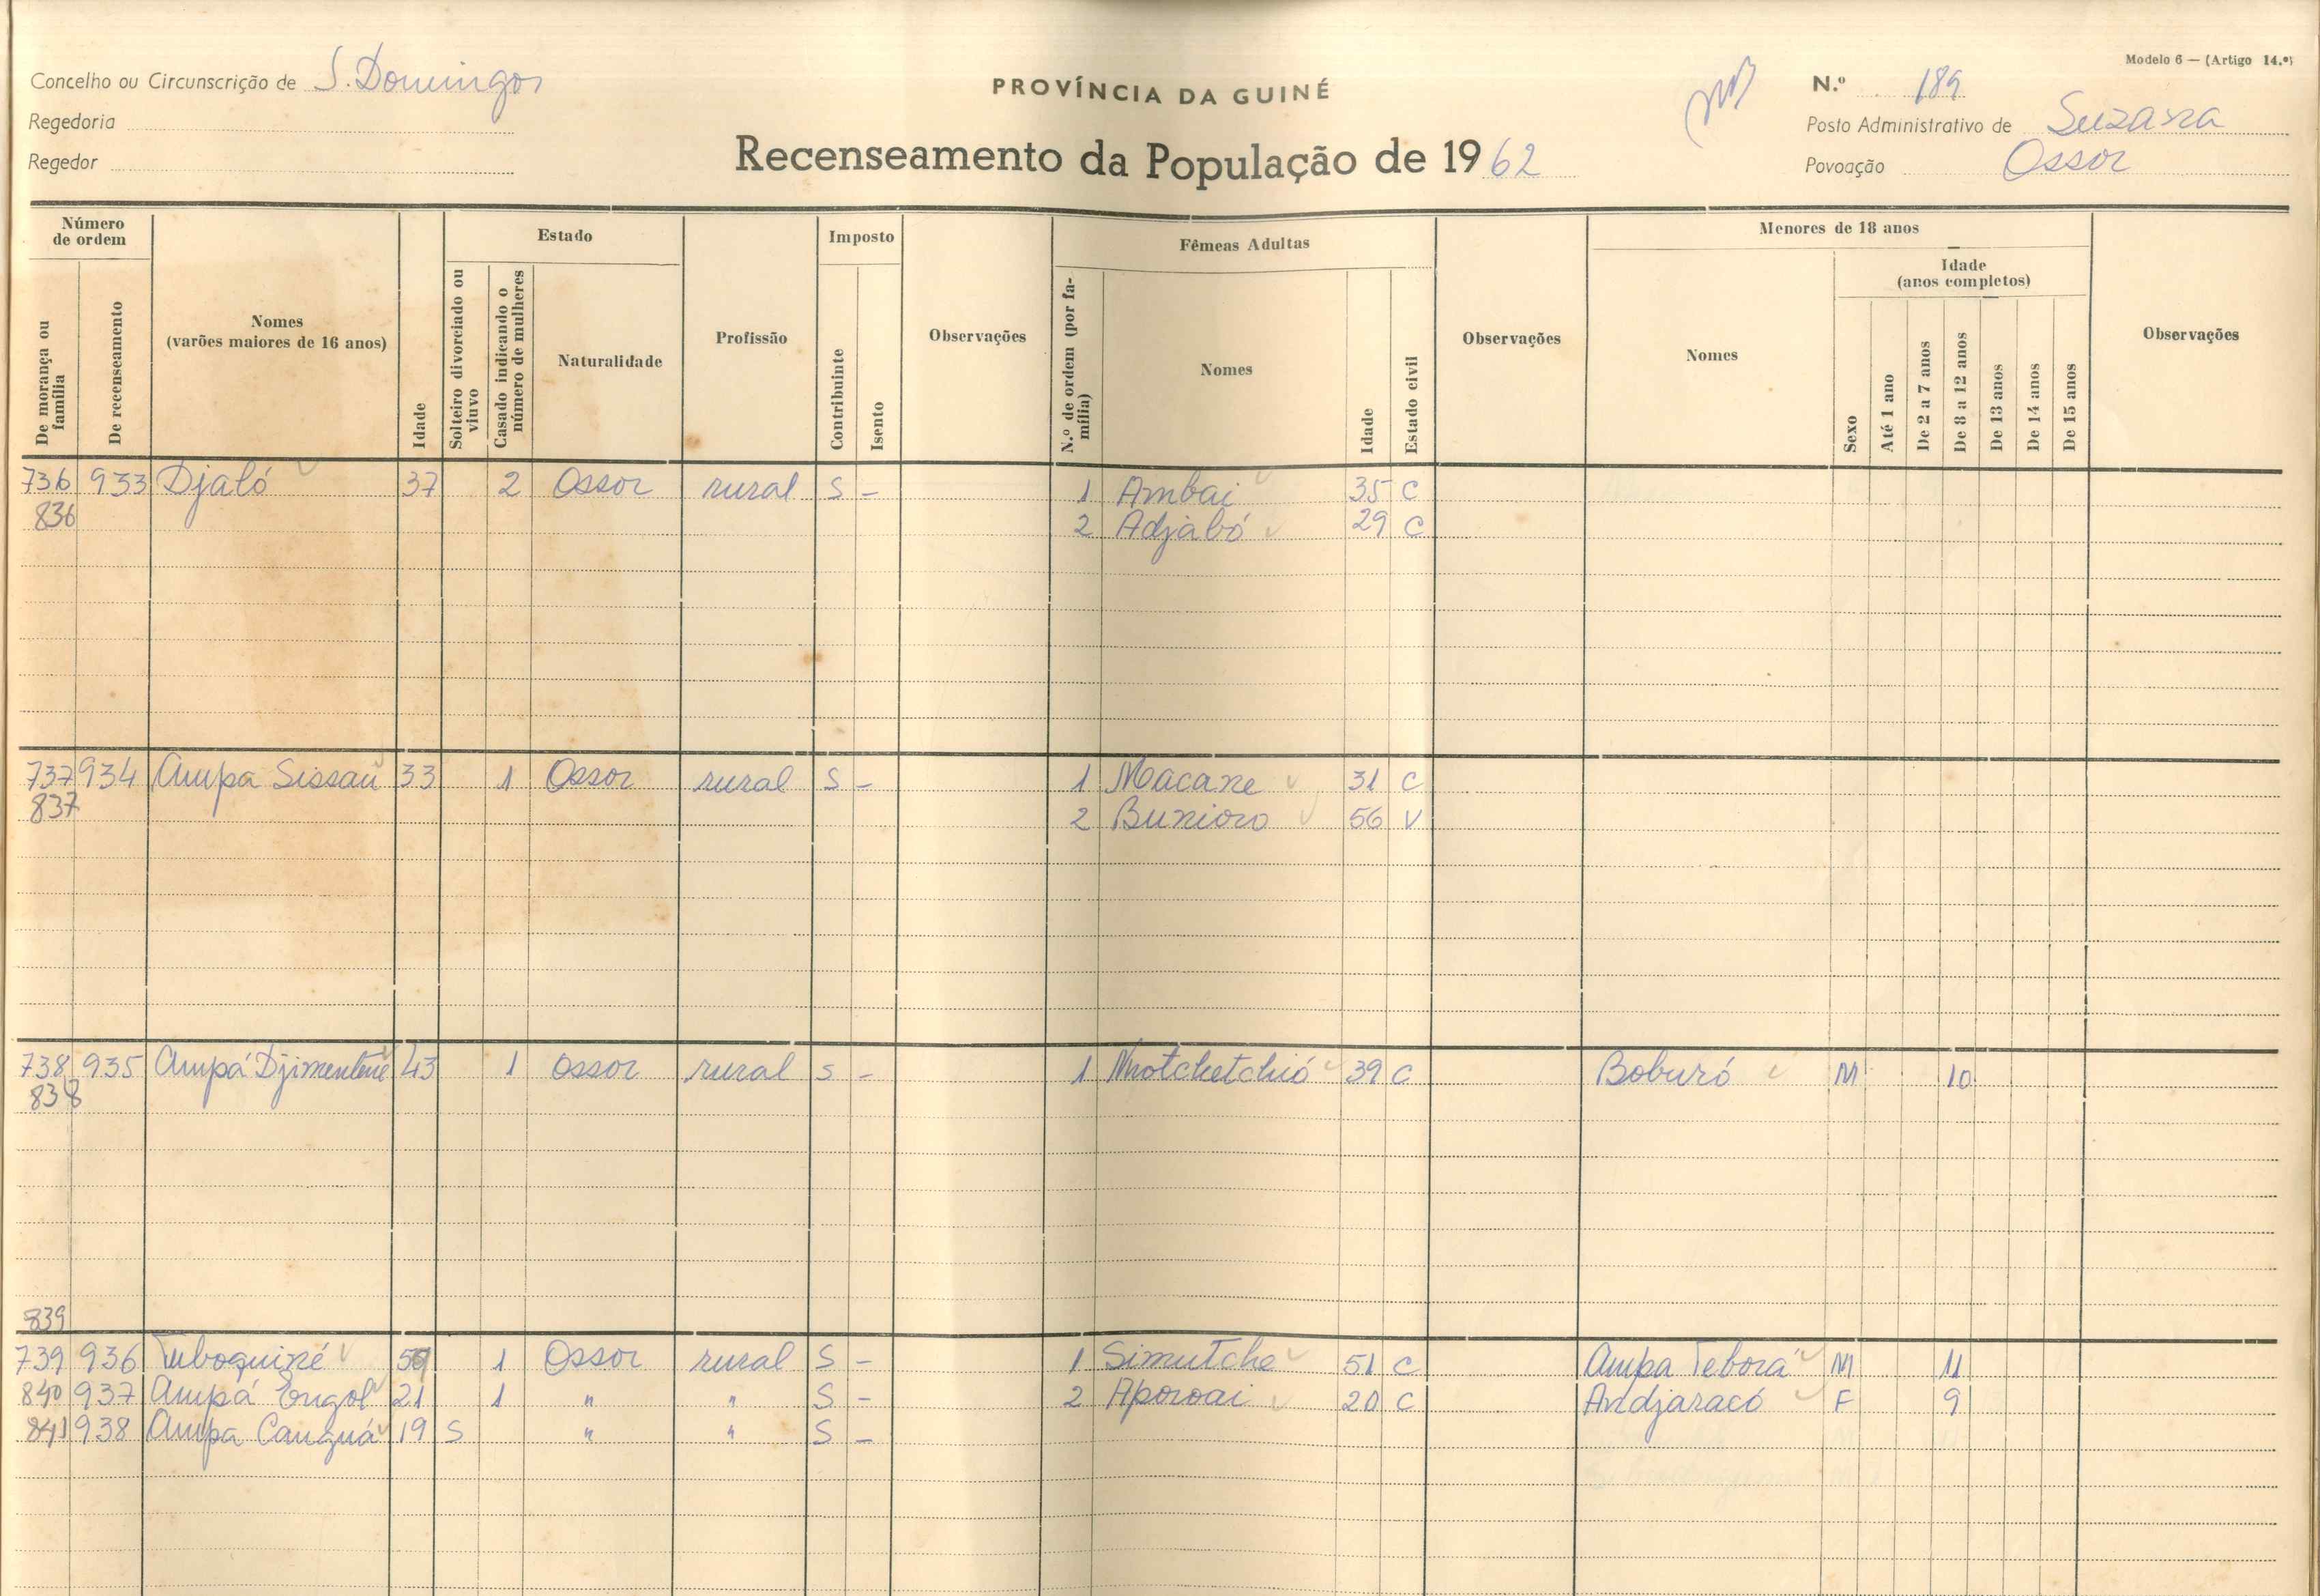 Modelo 6 — (Artigo 14.º)
Concelho ou Circunscrição de S. Domingos
PROVÍNCIA DA GUINÉ
N.º 189
Regedoria
Posto Administrativo de Suzana
Regedor
Recenseamento da População de 1962
Povoação Ossor
Número de ordem
De morança ou família
De recenseamento
Nomes
(varões maiores de 16 anos)
Idade
Estado
Solteiro divorciado ou viuvo
Casado indicando o número de mulheres
Naturalidade
Profissão
Imposto
Contribuinte
Isento
Observações
Fêmeas Adultas
N.º de ordem (por família)
Nomes
Idade
Estado civil
Observações
Menores de 18 anos
Nomes
Sexo
Idade
(anos completos)
Até 1 ano
De 2 a 7 anos
De 8 a 12 anos
De 13 anos
De 14 anos
De 15 anos
Observações
736 933 Djaló 37 2 Ossor rural S – 1 Ambai 35 C
836 2 Adjabó 29 C
737 934 Ampa Sissau 33 1 Ossor rural S – 1 Macane 31 C
837 2 Bunioro 56 V
738 935 Ampá Djimentené 43 1 Ossor rural S – 1 39 C Boburó M 10
838
839
739 936 Tuboquiné 1 Ossor rural S – 1 Simutche 51 C Ampa Teborá M 11
840 937 Ampá Engol 21 1 " " S – 2 Aporoai 20 C Andjaracó F 9
841 938 Ampa Canguá 19 S " " S –